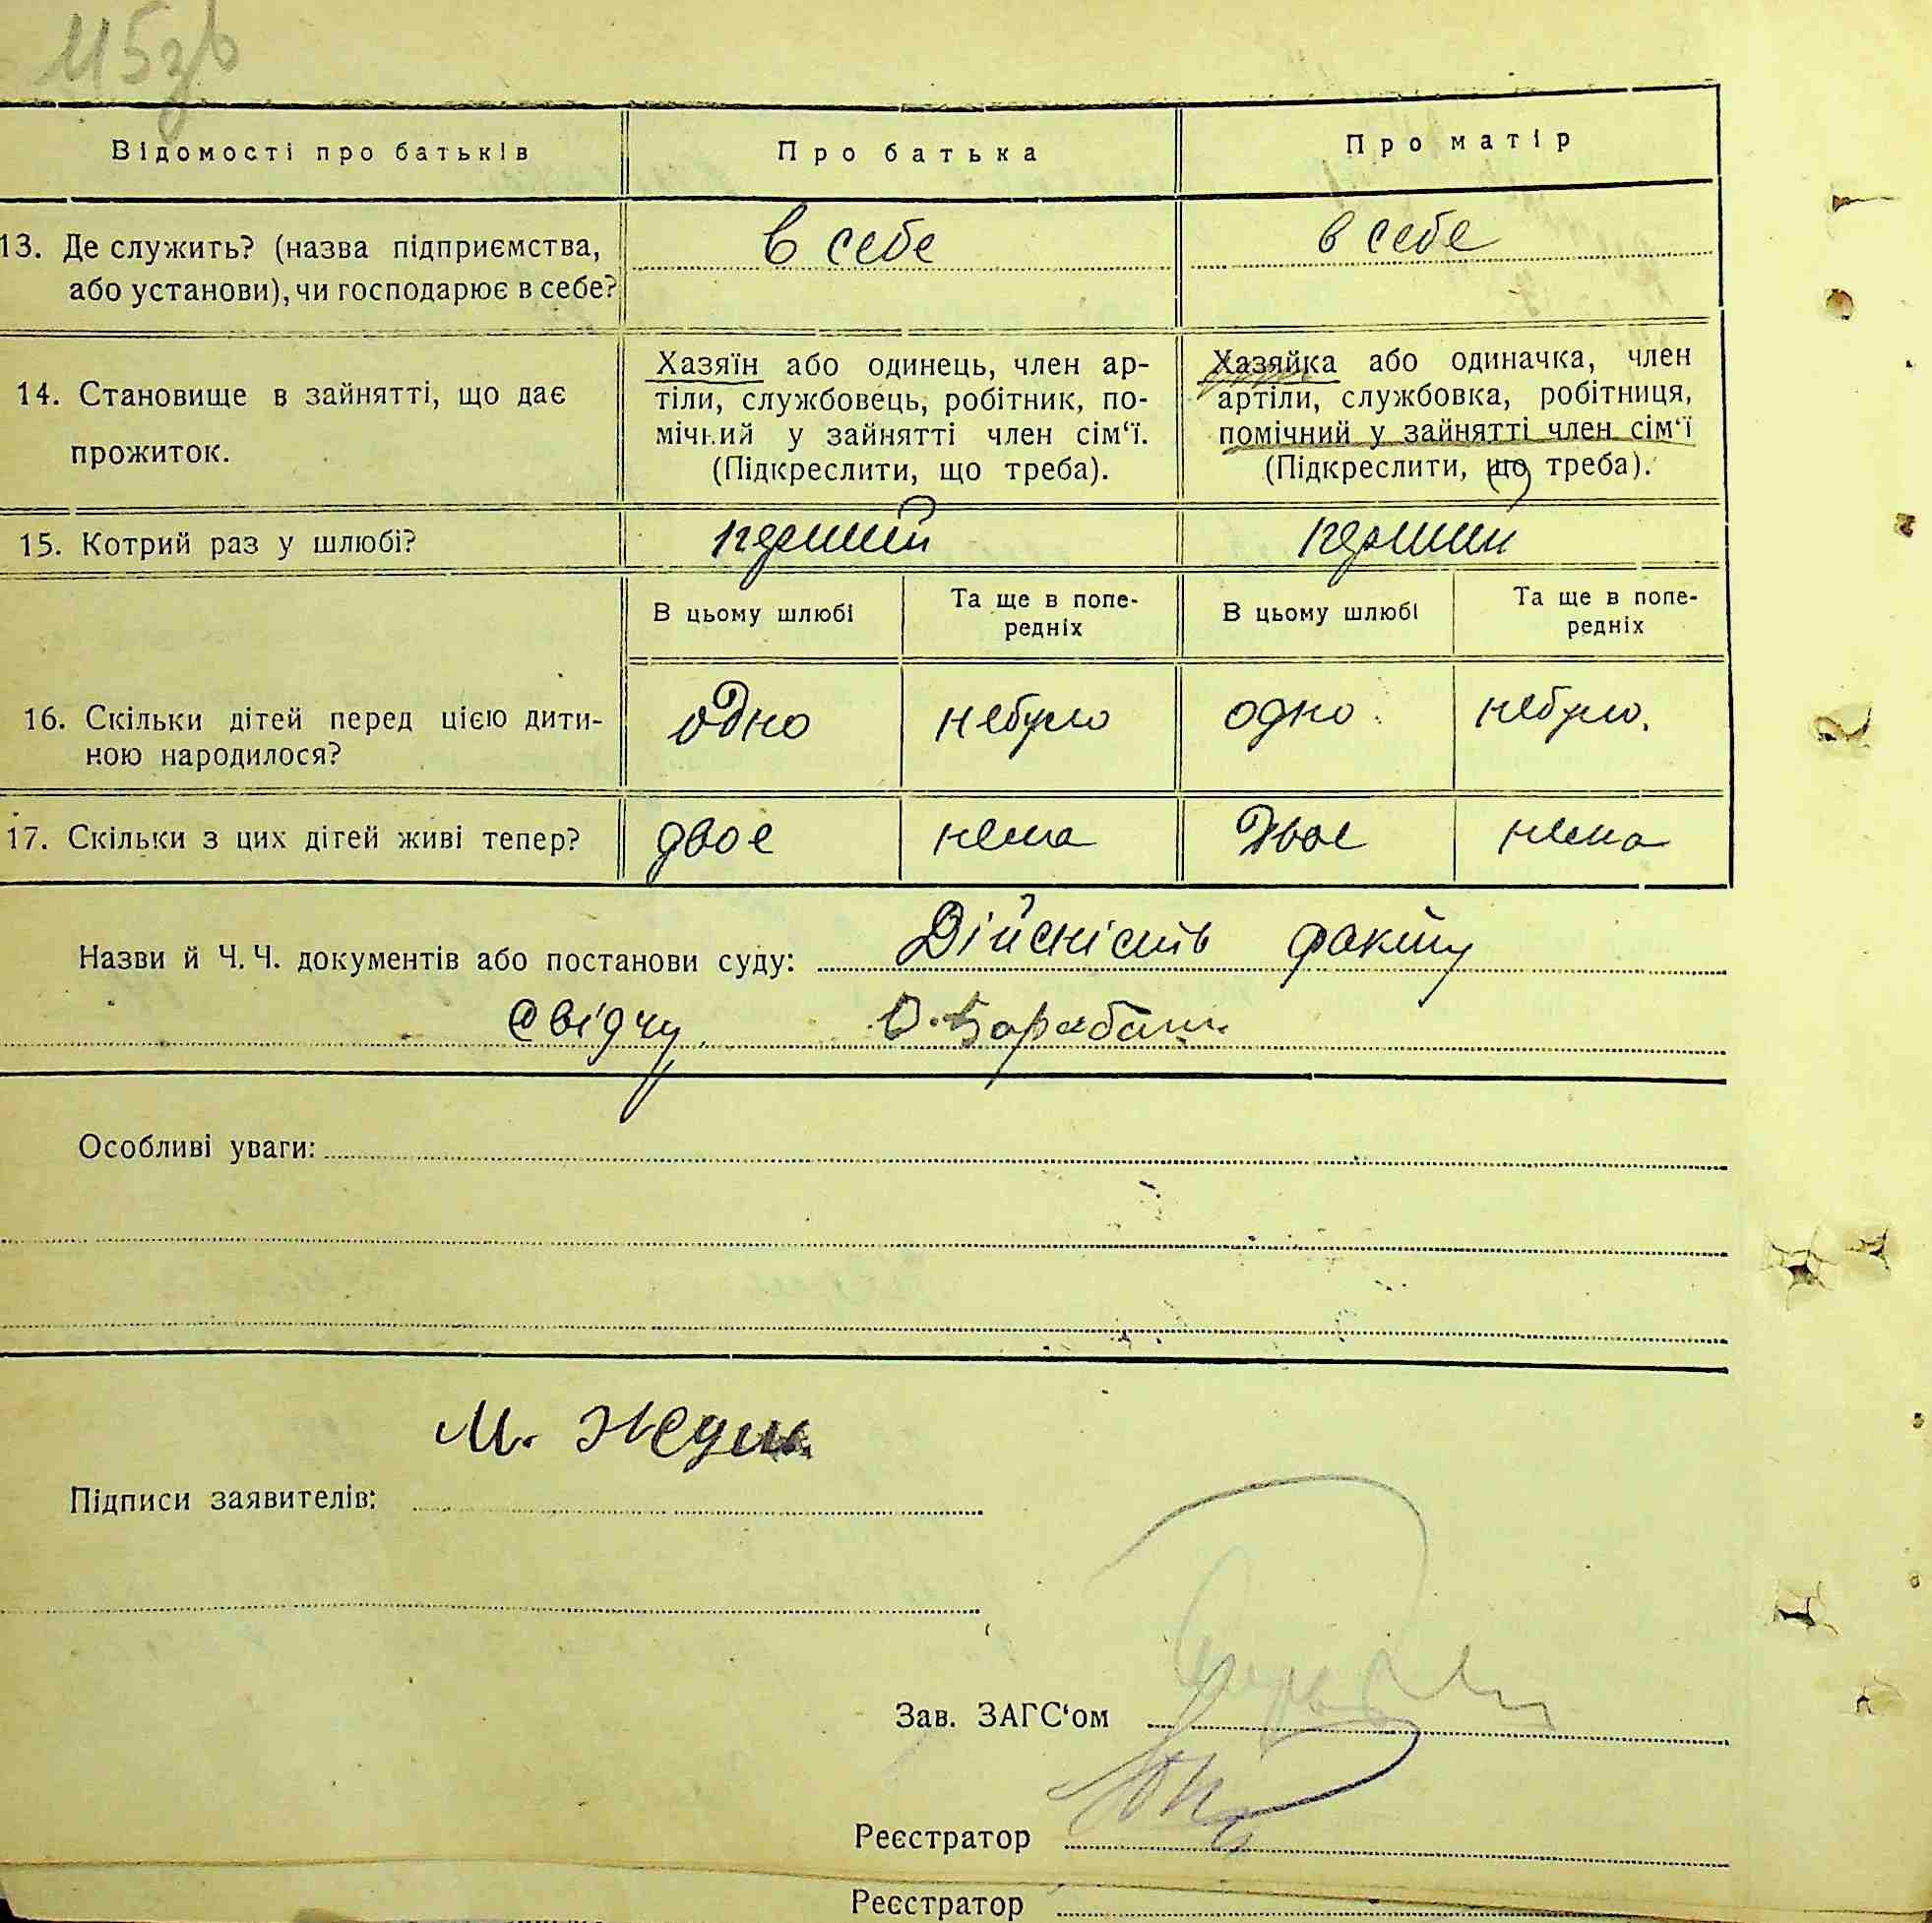 115зв
Відомості про батьків
Про батька
Про матір
13. Де служить? (назва підприємства,
або установи), чи господарює в себе?
в себе
в себе
14. Становище в зайнятті, що дає
прожиток.
Хазяїн або одинець, член ар-
тіли, службовець, робітник, по-
мічний у зайнятті член сім‘ї.
(Підкреслити, що треба).
Хазяйка або одиначка, член
артіли, службовка, робітниця,
помічний у зайнятті член сім‘ї
(Підкреслити, що треба).
15. Котрий раз у шлюбі?
перший
перший
В цьому шлюбі
Та ще в попе-
редніх
В цьому шлюбі
Та ще в попе-
редніх
16. Скільки дітей перед цією дити-
ною народилося?
одно
небуло
одно
небуло.
17. Скільки з цих дітей живі тепер?
двое
нема
двое
нема
Назви й Ч. Ч. документів або постанови суду: Дійсність факту
свідчу О. Барабаш
Особливі уваги:
М.
Підписи заявителів:
Зав. ЗАГС‘ом
Реєстратор
Реєстратор